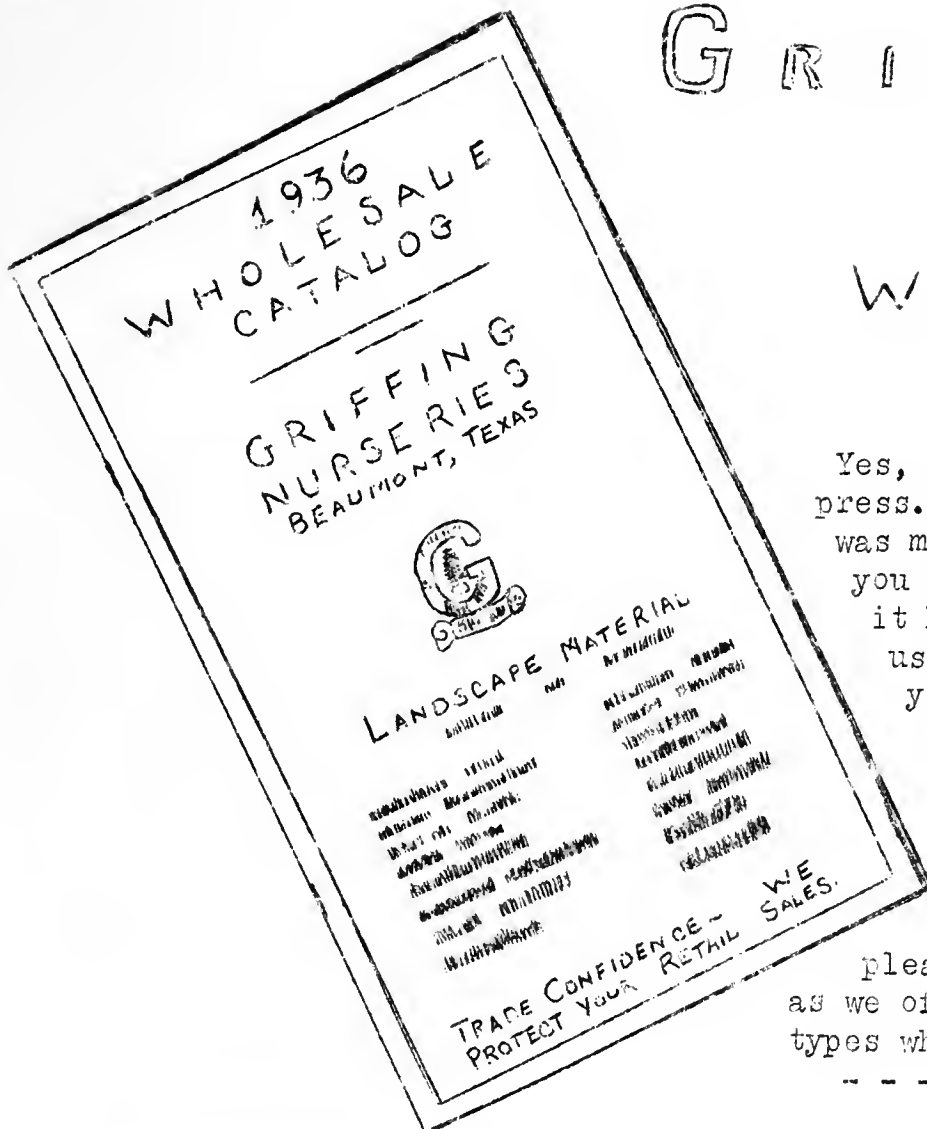 GRI
1936
WHOLESALE
CATALOG
GRIFFING
NURSERIES
BEAUMONT, TEXAS
G
LANDSCAPE MATERIAL
TRADE CONFIDENCE~ WE
PROTECT YOUR RETAIL SALES.
W
Yes,
press.
was m
you
it
us
y
plea
as we of
types wh
- - -